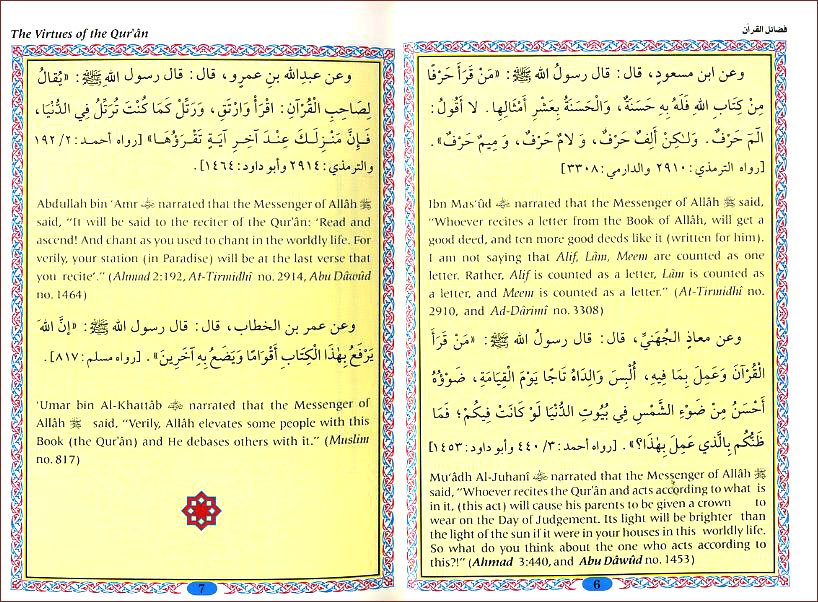 فضائل القرآن
وعن ابن مسعودٍ، قال: قال رسولُ الله ﷺ: «مَنْ قَرَأَ حَرْفًا
مِنْ كِتَابِ اللهِ فَلَهُ بِهِ حَسَنَةٌ، وَالْحَسَنَةُ بِعَشْرِ أَمْثَالِهَا. لا أَقُولُ:
الٓمٓ حَرْفٌ. وَلٰكِنْ أَلِفٌ حَرْفٌ، وَ لامٌ حَرْفٌ، وَ مِيمٌ حَرْفٌ».
[رواه الترمذي: ٢٩١٠ والدارمي: ٣٣٠٨]
Ibn Mas'ûd ؓ narrated that the Messenger of Allâh ﷺ said,
“Whoever recites a letter from the Book of Allâh, will get a
good deed, and ten more good deeds like it (written for him).
I am not saying that Alif, Lâm, Meem are counted as one
letter. Rather, Alif is counted as a letter, Lâm is counted as
a letter, and Meem is counted as a letter.” (At-Tirmidhî no.
2910, and Ad-Dârimî no. 3308)
وعن معاذٍ الجُهَنِيِّ، قال: قال رسولُ الله ﷺ: «مَنْ قَرَأَ
الْقُرْآنَ وَعَمِلَ بِمَا فِيهِ، أُلْبِسَ وَالِدَاهُ تَاجًا يَوْمَ الْقِيَامَةِ، ضَوْؤُهُ
أَحْسَنُ مِنْ ضَوْءِ الشَّمْسِ فِي بُيُوتِ الدُّنْيَا لَوْ كَانَتْ فِيكُمْ؛ فَمَا
ظَنُّكُم بِالَّذِي عَمِلَ بِهٰذَا؟». [رواه أحمد: ٣/ ٤٤٠ وأبو داود: ١٤٥٣]
Mu'âdh Al-Juhanî ؓ narrated that the Messenger of Allâh ﷺ
said, “Whoever recites the Qur'ân and acts according to what is
in it, (this act) will cause his parents to be given a crown to
wear on the Day of Judgement. Its light will be brighter than
the light of the sun if it were in your houses in this worldly life.
So what do you think about the one who acts according to
this?!” (Ahmad 3:440, and Abu Dâwûd no. 1453)
6
The Virtues of the Qur'ân
وعن عبدِالله بنِ عمرٍو، قال: قال رسول اللهِ ﷺ: «يُقَالُ
لِصَاحِبِ الْقُرْآنِ: اقْرَأْ وَارْتَقِ، وَرَتِّلْ كَمَا كُنْتَ تُرَتِّلُ فِي الدُّنْيَا،
فَإِنَّ مَنْزِلَكَ عِنْدَ آخِرِ آيَةٍ تَقْرَؤُهَا» [رواه أحمد: ٢/ ١٩٢
والترمذي: ٢٩١٤ وأبو داود: ١٤٦٤].
Abdullah bin 'Amr ؓ narrated that the Messenger of Allâh ﷺ
said, “It will be said to the reciter of the Qur'ân: 'Read and
ascend! And chant as you used to chant in the worldly life. For
verily, your station (in Paradise) will be at the last verse that
you recite'.” (Ahmad 2:192, At-Tirmidhî no. 2914, Abu Dâwûd
no. 1464)
وعن عمر بن الخطاب، قال: قال رسول الله ﷺ: «إِنَّ اللهَ
يَرْفَعُ بِهٰذَا الْكِتَابِ أَقْوَامًا وَيَضَعُ بِهِ آخَرِينَ». [رواه مسلم: ٨١٧].
'Umar bin Al-Khattâb ؓ narrated that the Messenger of
Allâh ﷺ said, “Verily, Allâh elevates some people with this
Book (the Qur'ân) and He debases others with it.” (Muslim
no. 817)
7